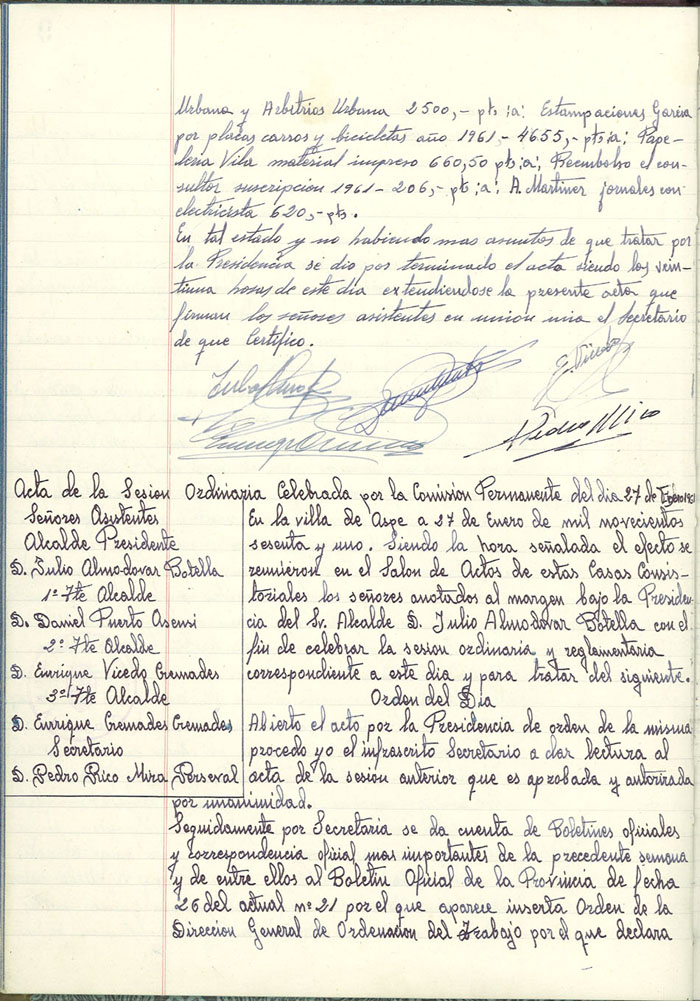 Urbana y Arbitrios Urbana 2500,- pts ;a; Estampaciones Garcia
por placas carros y bicicletas año 1961,- 4655,- pts ;a; Pape-
leria Vila material impreso 660,50 pts ;a; Reembolso el con-
sultor suscripcion 1961 - 206,- pts ;a; A. Martinez jornales con
electricista 620,- pts.
En tal estado y no habiendo mas asuntos de que tratar por
la Presidencia se dio por terminado el acta siendo las vein-
tiuna horas de este dia extendiendose la presente acta que
firman los señores asistentes en union mia el Secretario
de que Certifico.
E. Vicedo
Pedro Rico
Acta de la Sesion Ordinaria Celebrada por la Comision Permanente del dia 27 de Enero 1961
Señores Asistentes
Alcalde Presidente
D. Julio Almodovar Botella
1º Tte Alcalde
D. Daniel Puerto Asensi
2º Tte Alcalde
D. Enrique Vicedo Cremades
3º Tte Alcalde
D. Enrique Cremades Cremades
Secretario
D. Pedro Rico Mira Perseval
En la villa de Aspe a 27 de Enero de mil novecientos
sesenta y uno. Siendo la hora señalada el efecto se
reunieron en el Salon de Actos de estas Casas Consis-
toriales los señores anotados al margen bajo la Presiden-
cia del Sr. Alcalde D. Julio Almodovar Botella con el
fin de celebrar la sesion ordinaria y reglamentaria
correspondiente a este dia y para tratar del siguiente.
Orden del Dia
Abierto el acto por la Presidencia de orden de la misma
procedo yo el infrascrito Secretario a dar lectura al
acta de la sesion anterior que es aprobada y autorizada
por unanimidad.
Seguidamente por Secretaria se da cuenta de Boletines oficiales
y correspondencia oficial mas importantes de la precedente semana
y de entre ellos al Boletin Oficial de la Provincia de fecha
26 del actual nº 21 por el que aparece inserta Orden de la
Direccion General de Ordenacion del Trabajo por el que declara